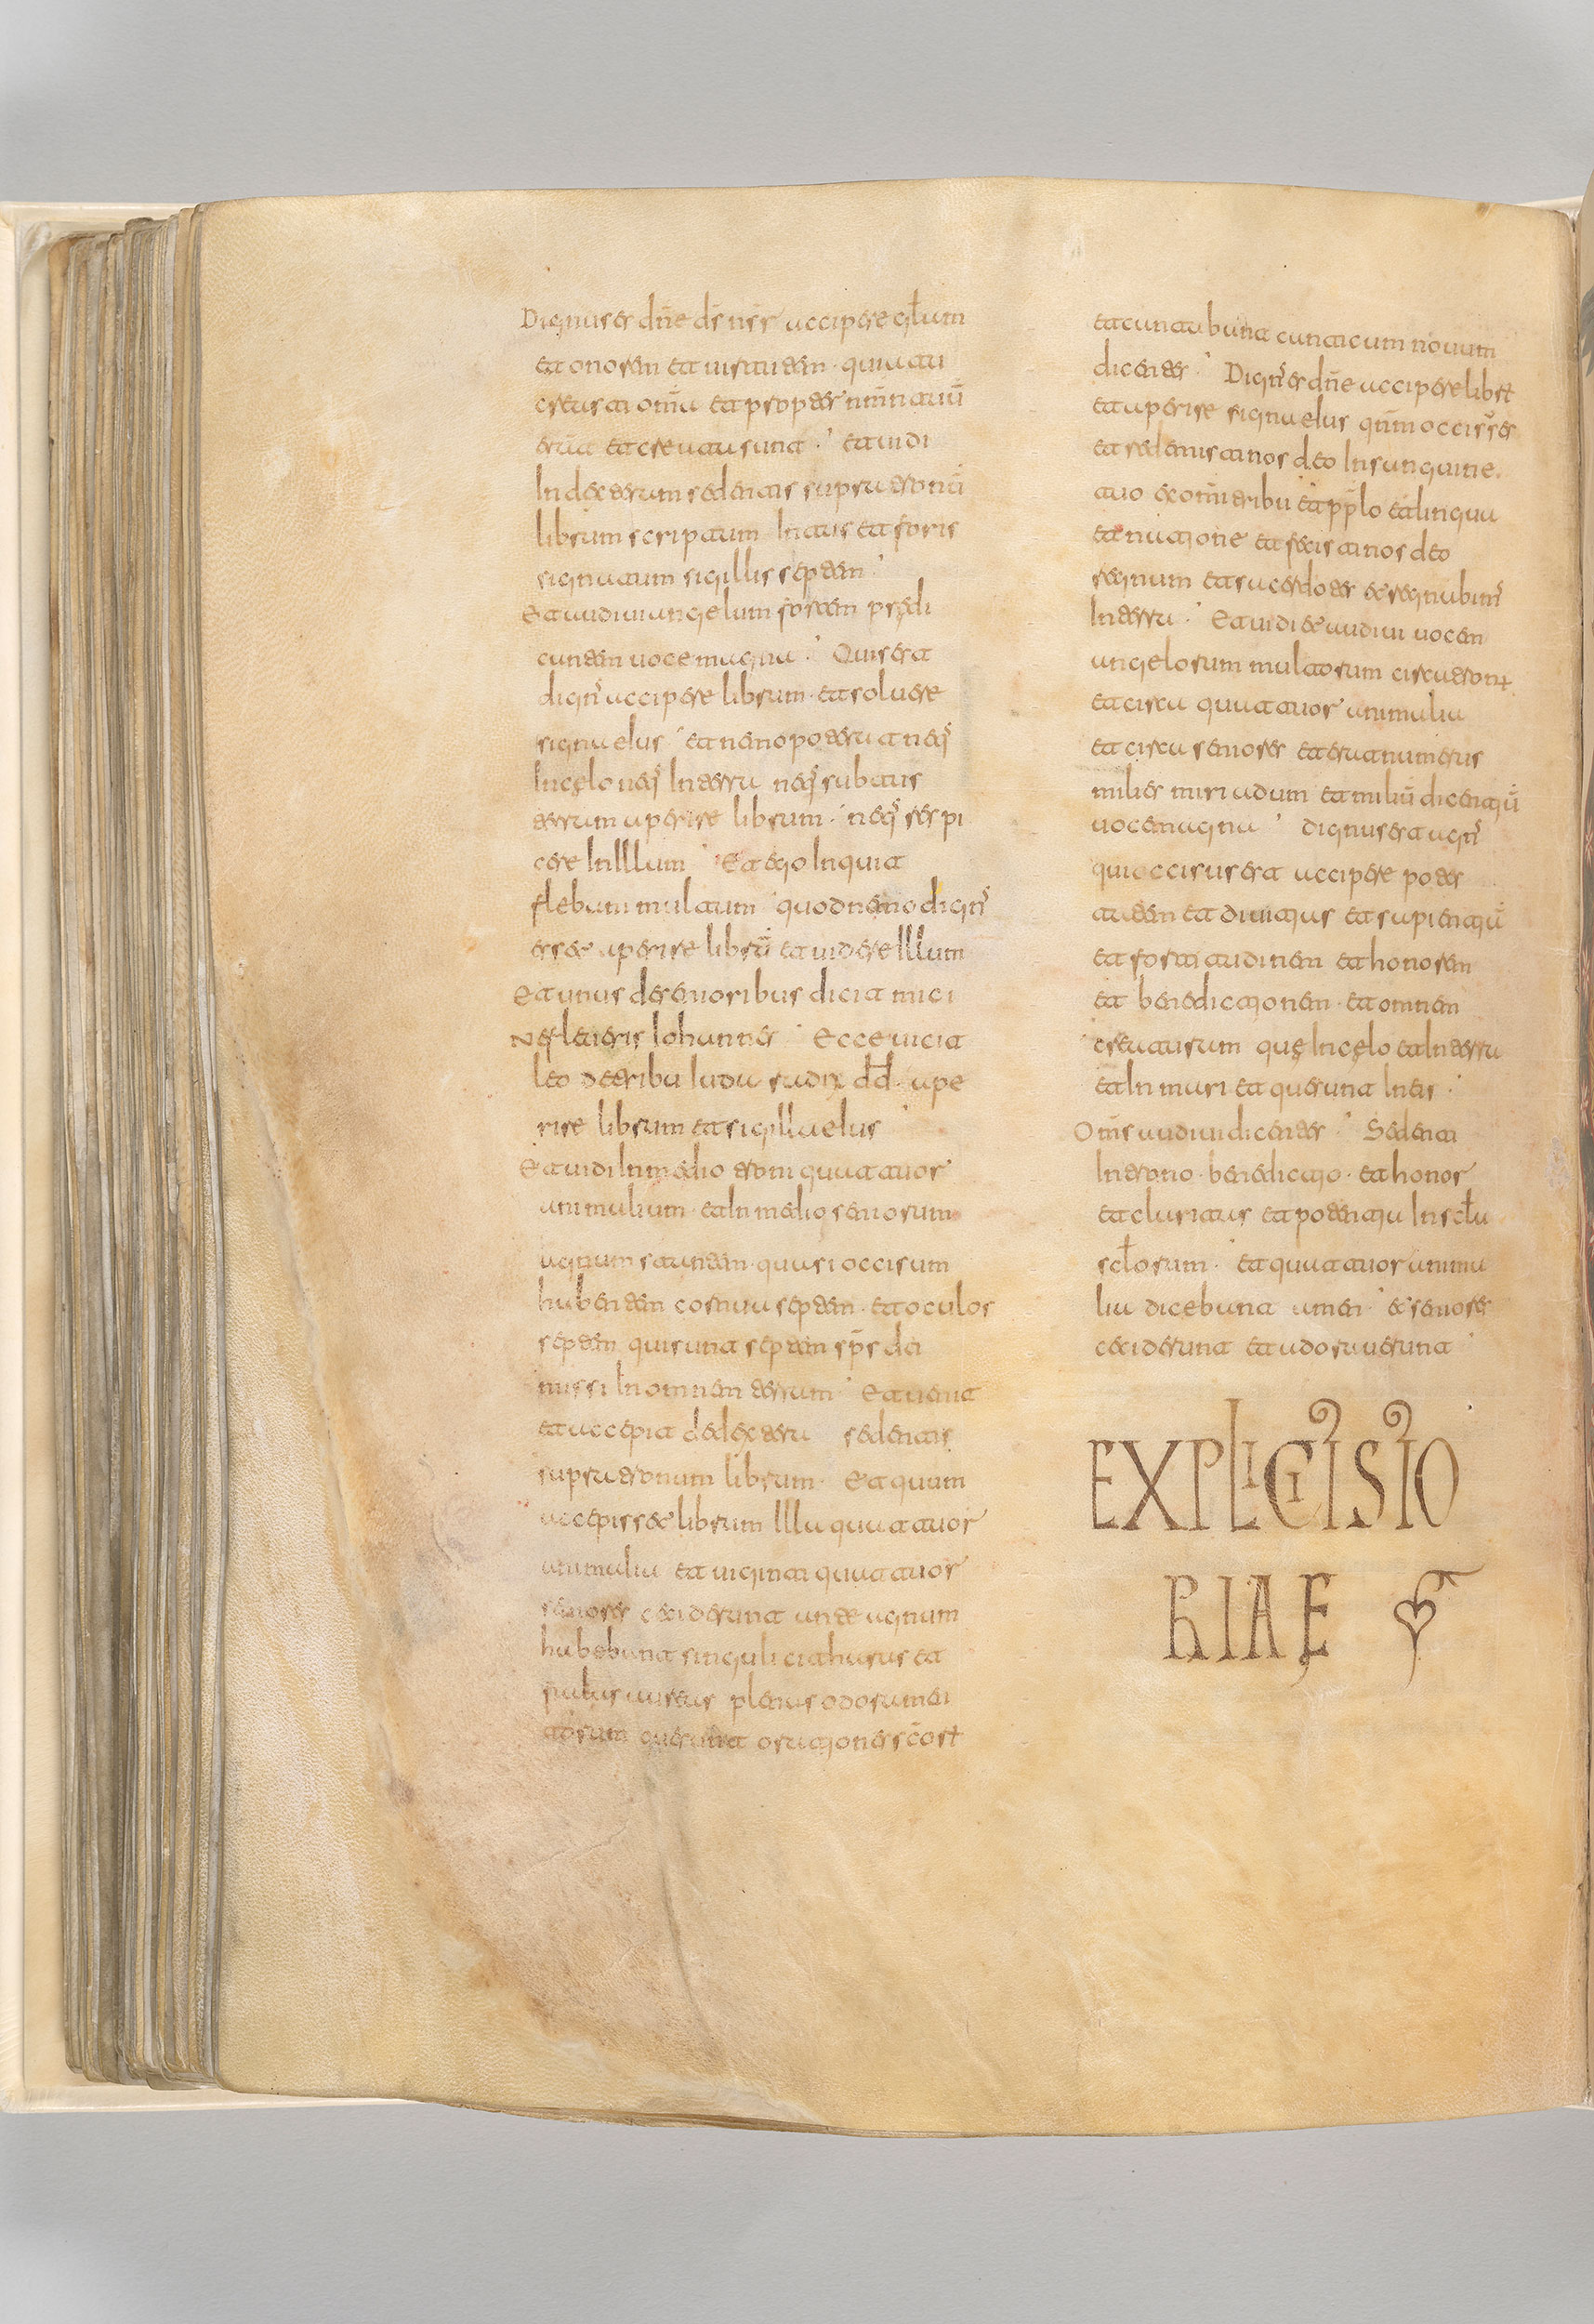 Dignus es dñe ds̄ nsr̄ accipere glłam
et onorem et uirtutem · quia tu
creasti om̄ia et propter uolūtatē
erāt et creata sunt · et uidi
In dextera sedentis supra tronū
librum scriptum Intus et foris
signatum sigillis septem
Et audiui angelum fortem predi
cantem uoce magna · Quis est
dignꝰ accipere librum · et soluere
signa eius et nemo poterat neqꝫ
In celo neqꝫ In terra neqꝫ subtus
terram aperire librum · neqꝫ respi
cere Illum Et ego In quit
flebam multum quod nemo dignꝰ
esset aperire librū et uidere Illum
Et unus de senioribus dicit mici
Ne fleueris Iohannes Ecce uicit
leo de tribu Iuda radix dd̄ · ape
rire librum et sigilla eius
Et uidi In medio troni quattuor
animalium · et In medio seniorum
agnum stantem · quasi occisum
habentem cornua septem · et oculos
septem qui sunt septem sp̄s dei
missi In omnem terram Et uenit
et accepit de dextera sedentis
supra tronum librum · Et quum
accepisset librum Illa quattuor
animalia et uiginti quattuor
seniores ceciderunt ante agnum
habebant singuli citharas et
fialas aureas plenas odoramen
torum que sunt orationes scōrꝫ
et cantabant canticum nouum
dicentes · Dignꝰ es dñe accipere librꝫ
et aperire signa eius qnm̄ occisꝰ es
et redemisti nos deo In sanguine
tuo ex om̄i tribu et pplo et lingua
et natione et fecisti nos deo
regnum et sacerdotes et regnabimꝰ
In terra · Et uidi et audiui uocem
angelorum multorum circu tronꝫ
et circa quattuor animalia
et circa seniores et erat numerus
milies miriadum et miliū dicentiū
uoce magna dignus est agnꝰ
qui occisus est accipere potes
tatem et diuitias et sapientiā
et fortitudinem et honorem
et benedictionem · et omnem
creaturam que In celo et In terra
et In mari et que sunt In eis ·
Om̄s audiui dicentes · Sedenti
In trono · benedictio · et honor
et claritas et potentia In scłla
scłlorum · et quattuor anima
lia dicebant amen · et seniores
ceciderunt et adorauerunt
EXPLICIT ISTO
RIAE